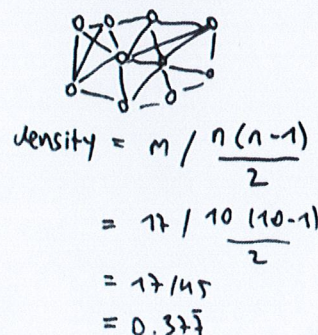 density = m / n(n-1)
2
= 17 / 10 (10-1)
2
= 17/45
= 0.377̄